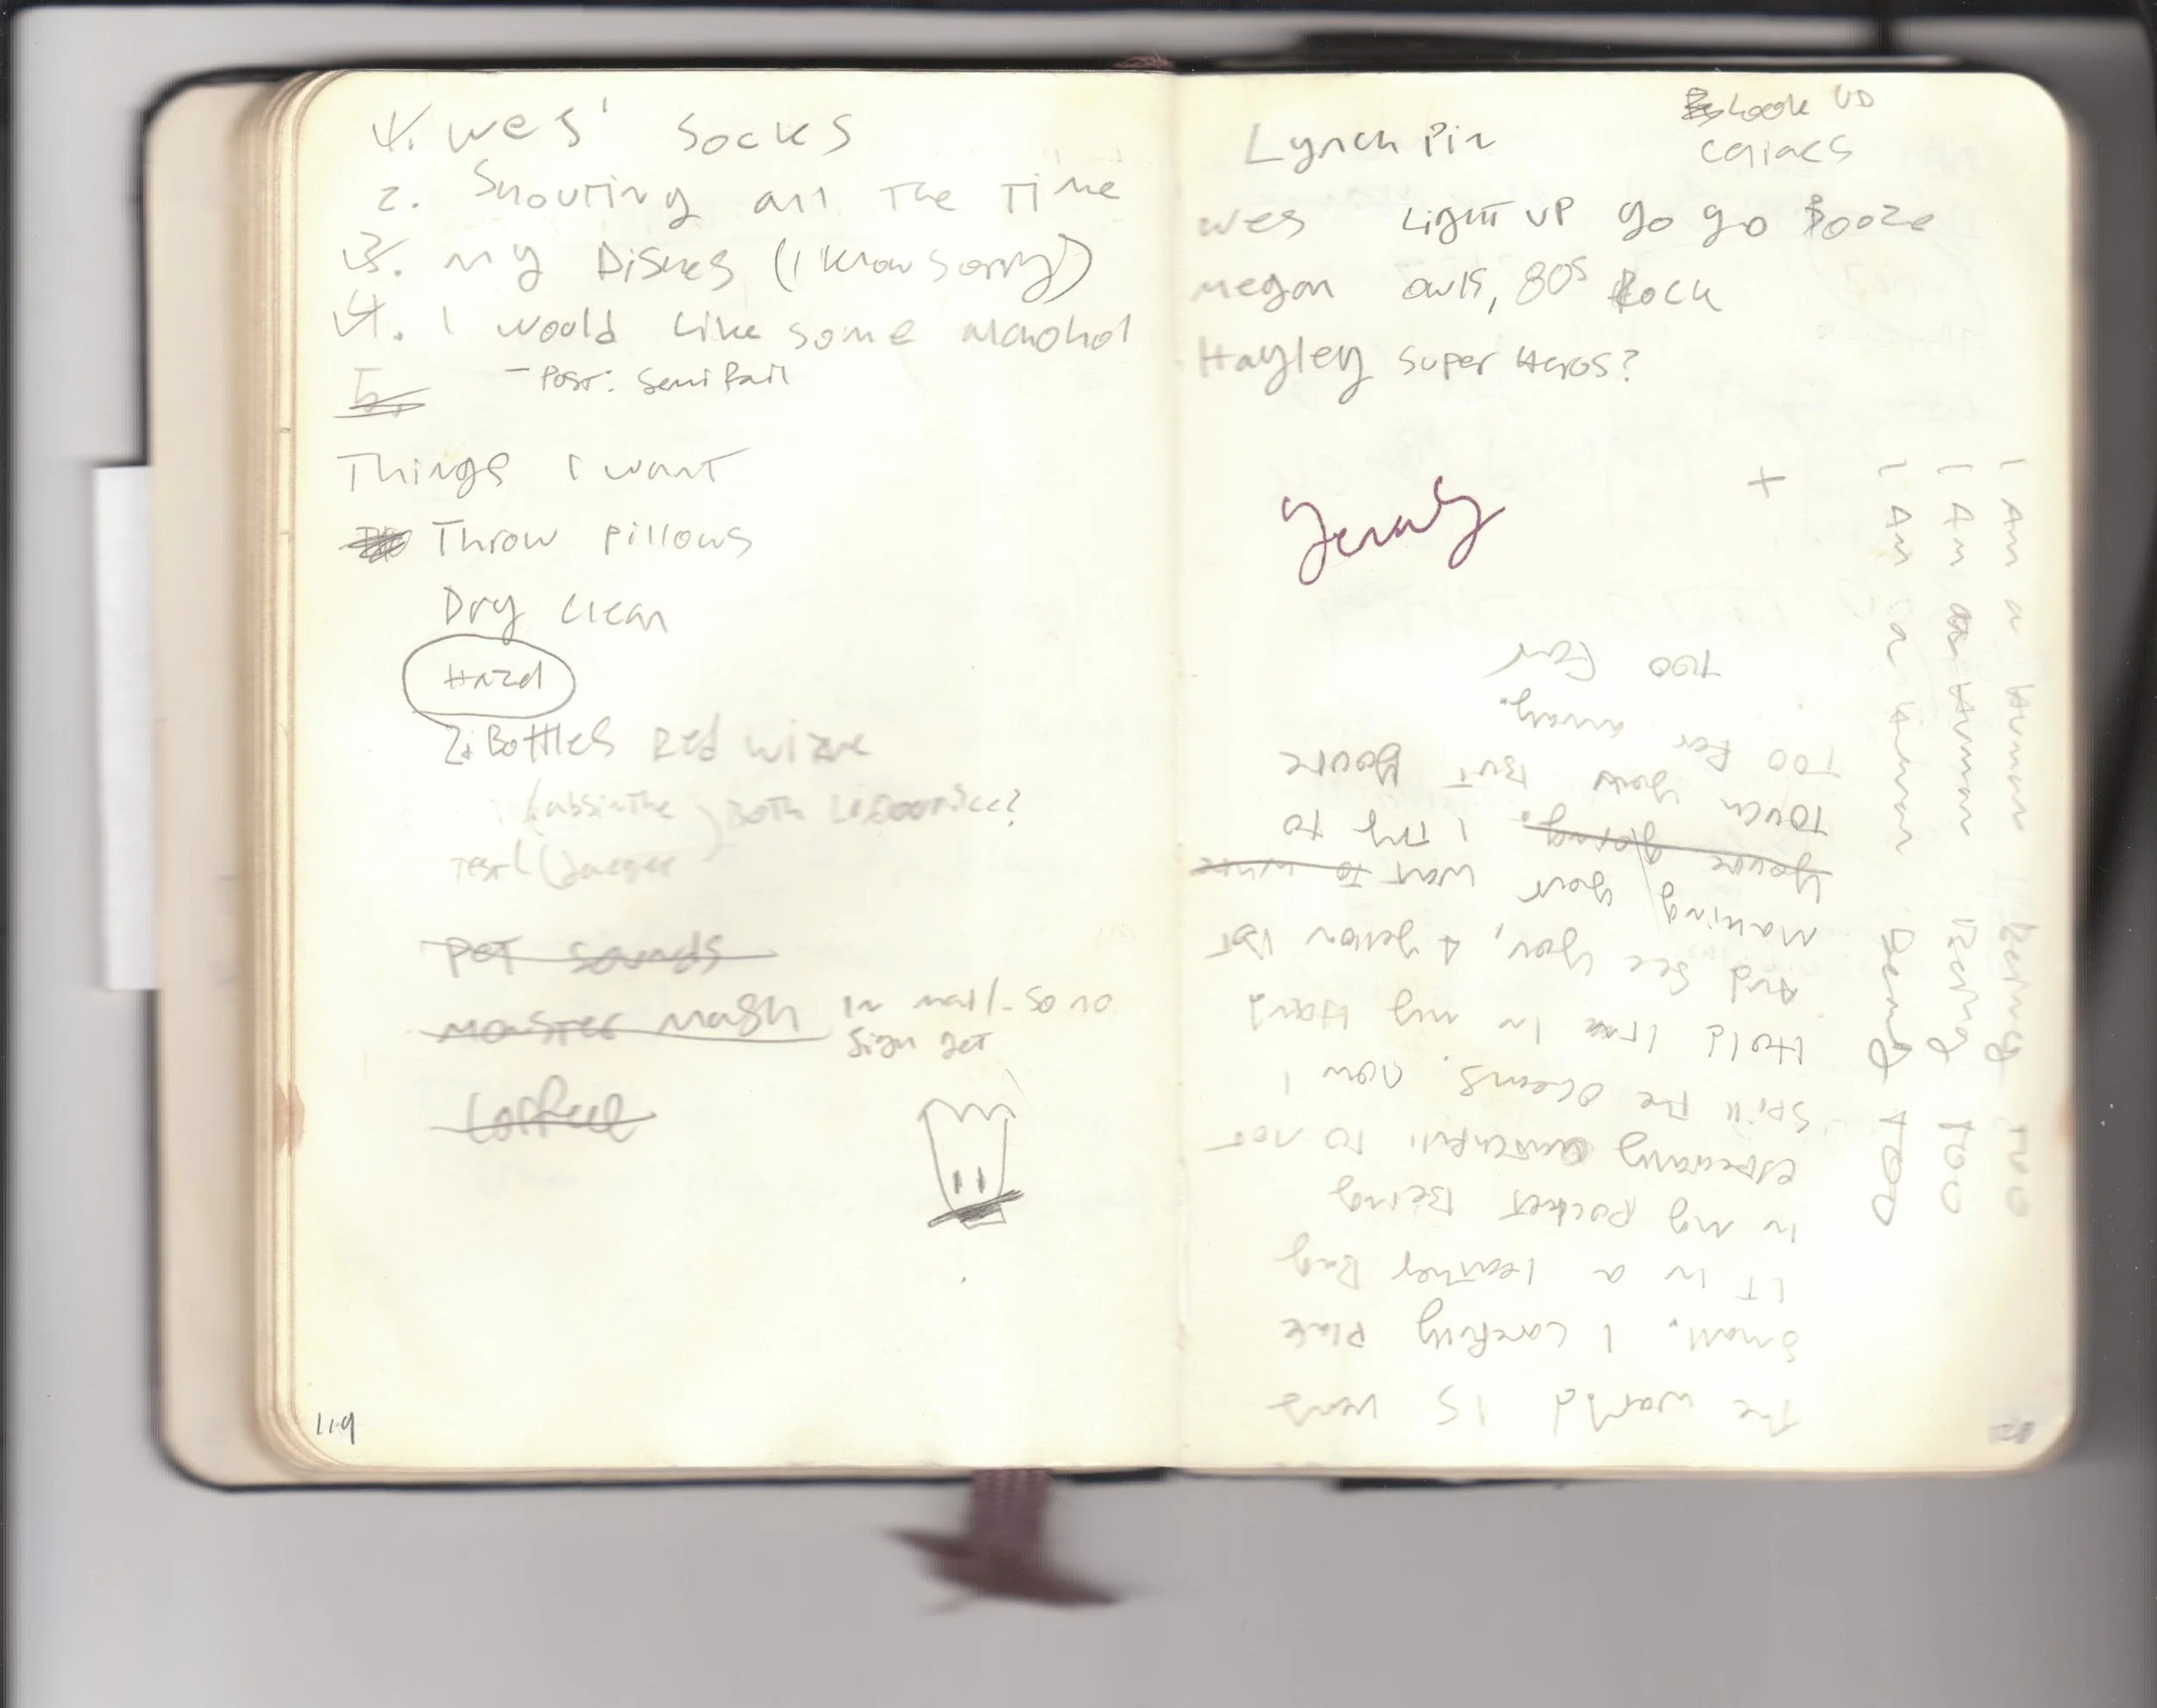 1. Wes' Socks
2. Shouting all The Time
3. My Dishes (I Know Sorry)
4. I would Like some alcohol
5.
- Post: Semi Fail
Things I want
Throw pillows
Dry clean
2. Bottles Red wine
(absinthe
) Both
Test (Jaeger
Pet sounds
Monster mash
In mail - so no
Sign yet
119
Look UP
Lynch Pin
Wes Light UP go go Booze
Megan owls, 80s Rock
Hayley Super Heros?
+
The world is very
Small. I carefully Place
IT in a leather Bag
in my pocket Being
to not
Spill the oceans. now I
Hold in my Hand
And see you, A yellow
Making your want to
you're going. I try to
Touch you But you're
Too Far away.
Too Far
I Am a Human Being Too
I Am a Human Being Too
I Am a Human Being Too